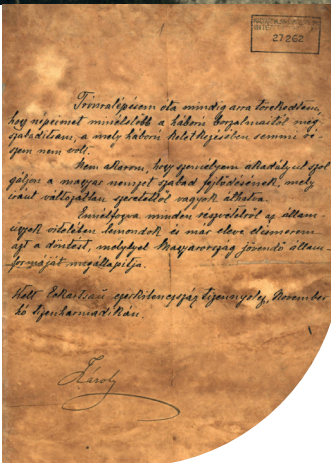 27262
Trónralépésem óta mindig arra törekedtem,
hogy népeimet mielébb a háború borzalmaitól meg
szabadítsam, a mely háború keletkezésében semmi ré-
szem nem volt.
Nem akarom, hogy személyem akadályul szol
gáljon a magyar nemzet szabad fejlődésének, mely
iránt változatlan szeretettől vagyok áthatva.
Ennélfogva minden részvételről az állam-
ügyek vitelében lemondok és már eleve elismerem
azt a döntést, mellyel Magyarország jövendő állam-
formáját megállapítja.
Kelt Eckartsau, ezerkilencszáz tizennyolcz, November
hó tizenharmadikán.
Károly